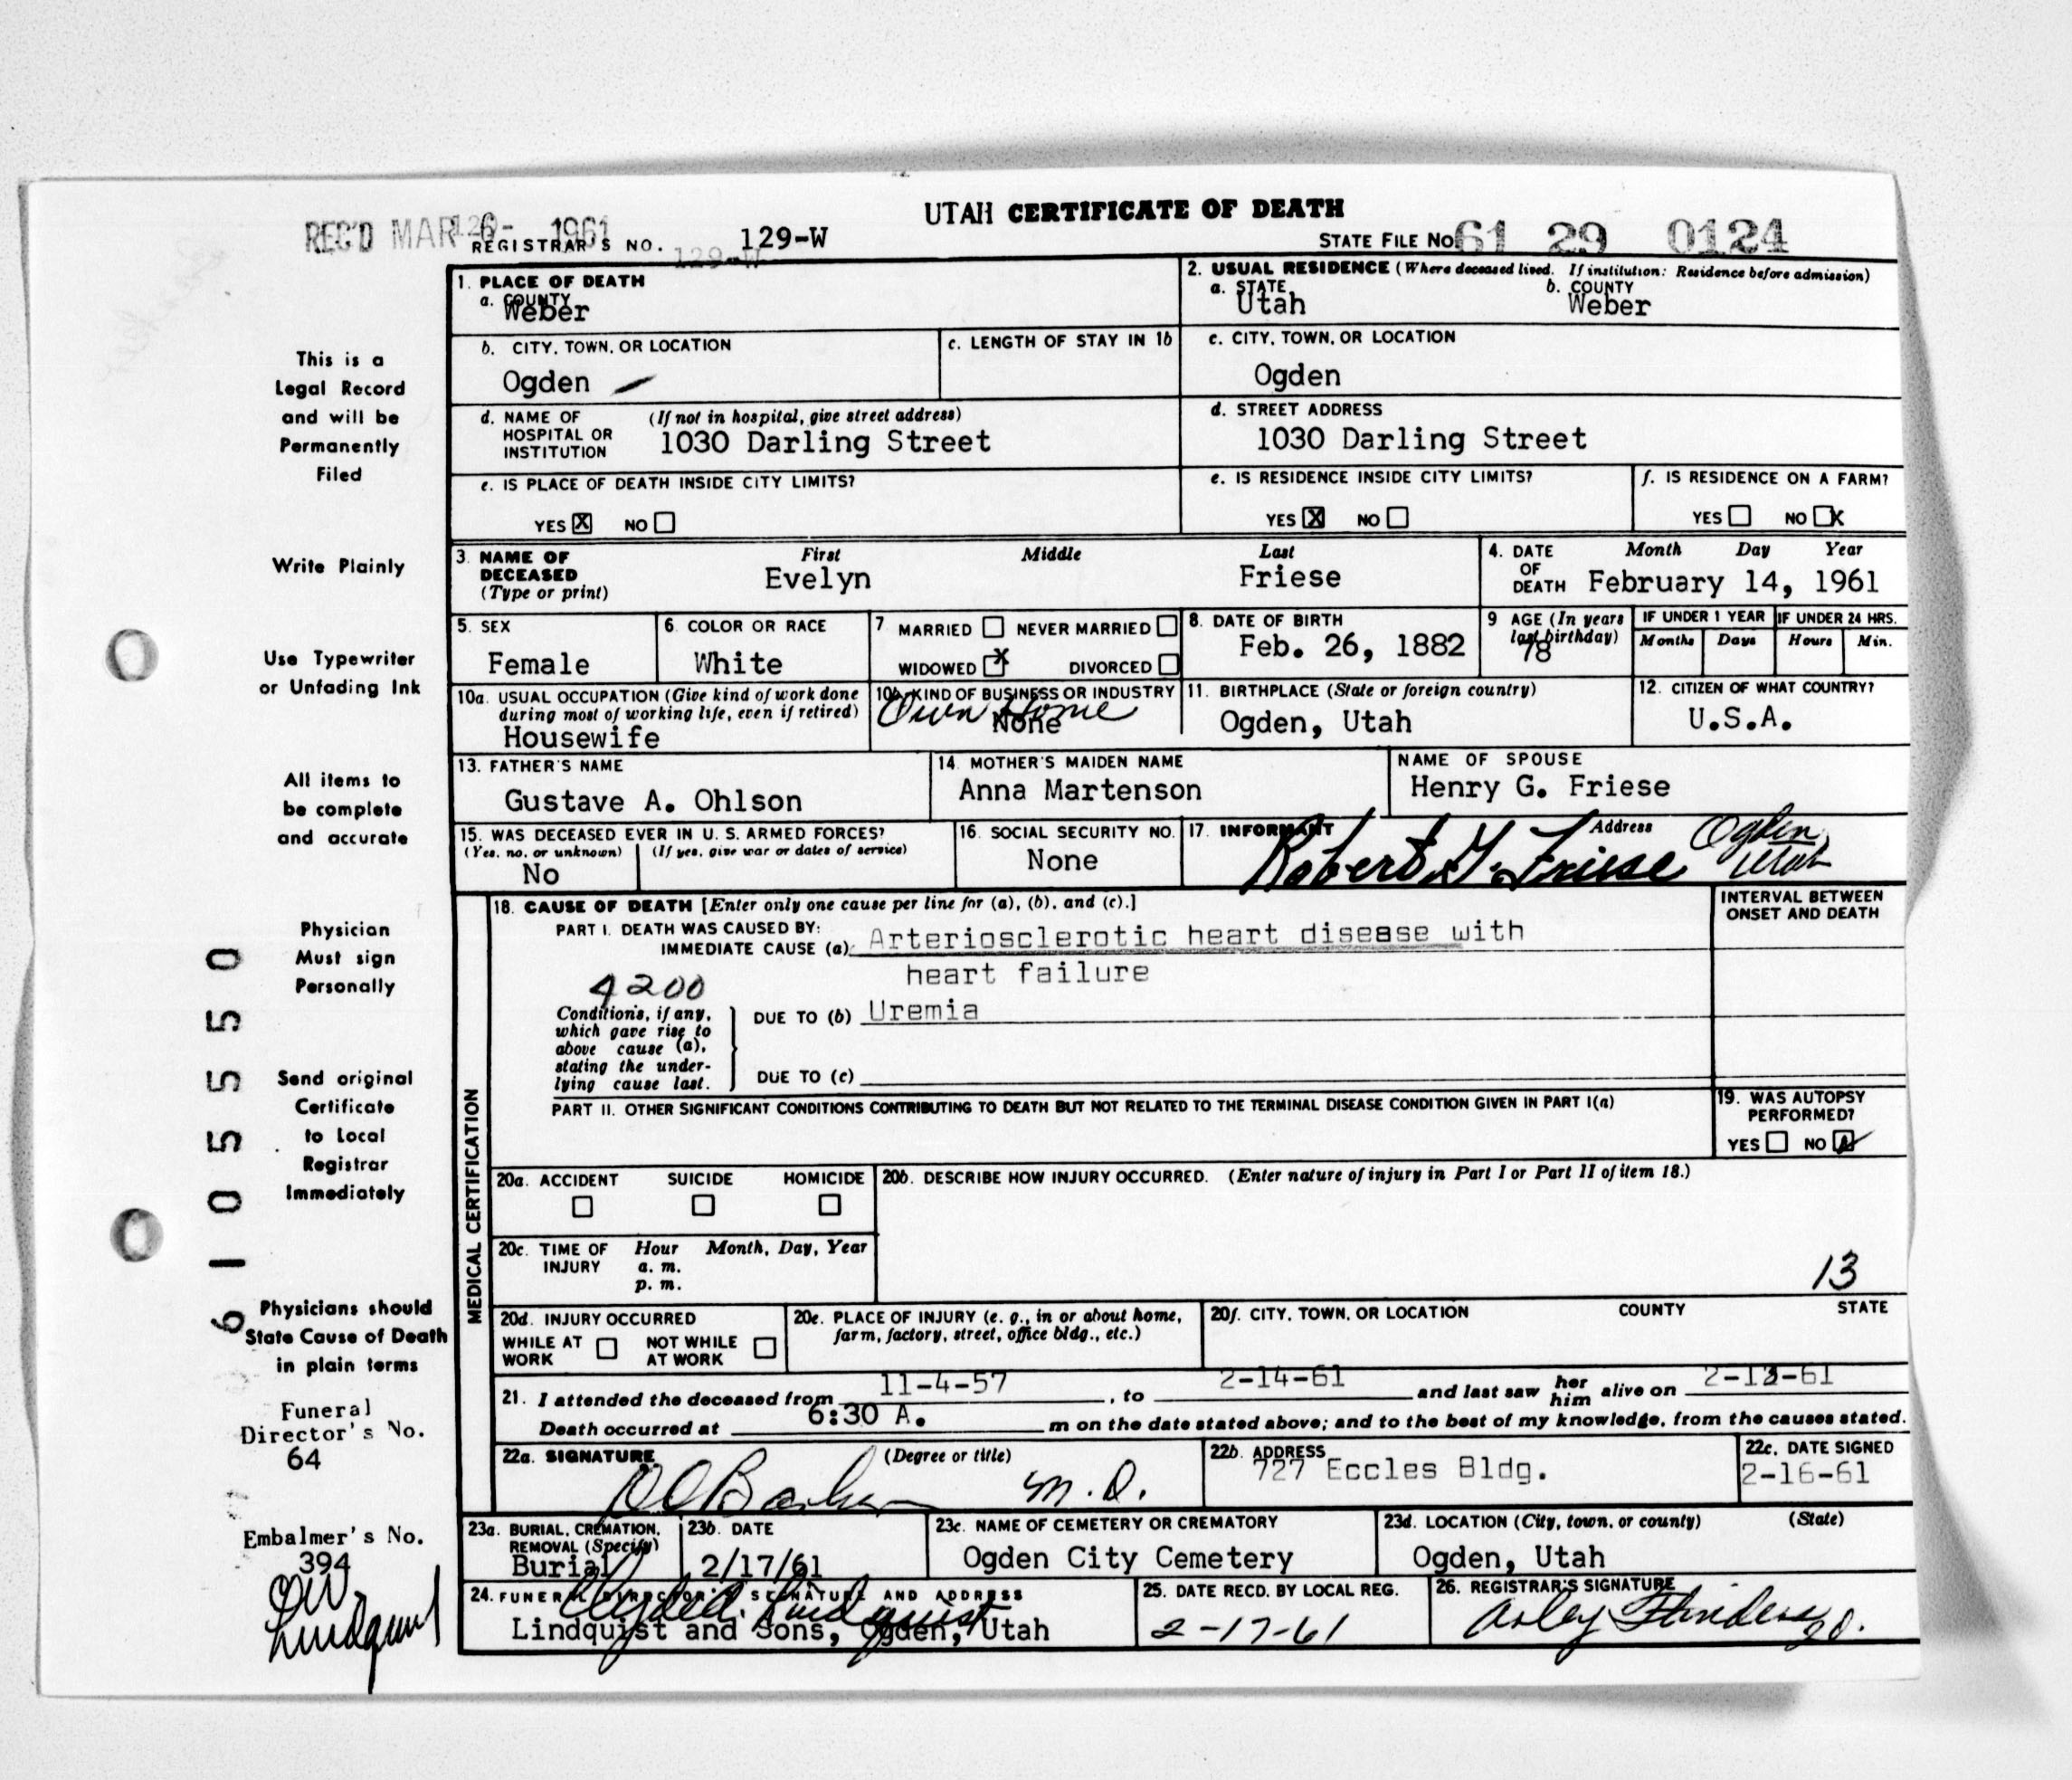 UTAH CERTIFICATE OF DEATH
REC'D MAR 6- 1961
REGISTRAR'S NO. 129-W
129-W
STATE FILE NO. 61 29 0124
This is a
Legal Record
and will be
Permanently
Filed
Write Plainly
Use Typewriter
or Unfading Ink
All items to
be complete
and accurate
Physician
Must sign
Personally
Send original
Certificate
to Local
Registrar
Immediately
Physicians should
State Cause of Death
in plain terms
Funeral
Director's No.
64
Embalmer's No.
394
Lindquist
61055550
1. PLACE OF DEATH
a. COUNTY
Weber
2. USUAL RESIDENCE (Where deceased lived. If institution: Residence before admission)
a. STATE b. COUNTY
Utah Weber
b. CITY, TOWN, OR LOCATION
Ogden
c. LENGTH OF STAY IN 1b
c. CITY, TOWN, OR LOCATION
Ogden
d. NAME OF HOSPITAL OR INSTITUTION (If not in hospital, give street address)
1030 Darling Street
d. STREET ADDRESS
1030 Darling Street
e. IS PLACE OF DEATH INSIDE CITY LIMITS?
YES X NO
e. IS RESIDENCE INSIDE CITY LIMITS?
YES X NO
f. IS RESIDENCE ON A FARM?
YES NO X
3. NAME OF DECEASED (Type or print)
First Middle Last
Evelyn Friese
4. DATE OF DEATH Month Day Year
February 14, 1961
5. SEX
Female
6. COLOR OR RACE
White
7 MARRIED NEVER MARRIED
WIDOWED X DIVORCED
8. DATE OF BIRTH
Feb. 26, 1882
9 AGE (In years last birthday)
78
IF UNDER 1 YEAR
Months Days
IF UNDER 24 HRS.
Hours Min.
10a. USUAL OCCUPATION (Give kind of work done during most of working life, even if retired)
Housewife
10b. KIND OF BUSINESS OR INDUSTRY
Own Home
None
11. BIRTHPLACE (State or foreign country)
Ogden, Utah
12. CITIZEN OF WHAT COUNTRY?
U.S.A.
13. FATHER'S NAME
Gustave A. Ohlson
14. MOTHER'S MAIDEN NAME
Anna Martenson
NAME OF SPOUSE
Henry G. Friese
15. WAS DECEASED EVER IN U. S. ARMED FORCES?
(Yes, no, or unknown) (If yes, give war or dates of service)
No
16. SOCIAL SECURITY NO.
None
17. INFORMANT Address
Robert G. Friese Ogden Utah
MEDICAL CERTIFICATION
18. CAUSE OF DEATH [Enter only one cause per line for (a), (b), and (c).]
INTERVAL BETWEEN ONSET AND DEATH
PART I. DEATH WAS CAUSED BY:
IMMEDIATE CAUSE (a) Arteriosclerotic heart disease with
heart failure
4200
Conditions, if any, which gave rise to above cause (a), stating the underlying cause last.
DUE TO (b) Uremia
DUE TO (c)
PART II. OTHER SIGNIFICANT CONDITIONS CONTRIBUTING TO DEATH BUT NOT RELATED TO THE TERMINAL DISEASE CONDITION GIVEN IN PART I(a)
19. WAS AUTOPSY PERFORMED?
YES NO
20a. ACCIDENT SUICIDE HOMICIDE
20b. DESCRIBE HOW INJURY OCCURRED. (Enter nature of injury in Part I or Part II of item 18.)
20c. TIME OF INJURY Hour Month, Day, Year
a. m.
p. m.
13
20d. INJURY OCCURRED
WHILE AT WORK NOT WHILE AT WORK
20e. PLACE OF INJURY (e. g., in or about home, farm, factory, street, office bldg., etc.)
20f. CITY, TOWN, OR LOCATION COUNTY STATE
21. I attended the deceased from 11-4-57, to 2-14-61 and last saw her him alive on 2-13-61
Death occurred at 6:30 A. m on the date stated above; and to the best of my knowledge, from the causes stated.
22a. SIGNATURE (Degree or title)
M.D.
22b. ADDRESS
727 Eccles Bldg.
22c. DATE SIGNED
2-16-61
23a. BURIAL, CREMATION, REMOVAL (Specify)
Burial
23b. DATE
2/17/61
23c. NAME OF CEMETERY OR CREMATORY
Ogden City Cemetery
23d. LOCATION (City, town, or county) (State)
Ogden, Utah
24. FUNERAL DIRECTOR'S SIGNATURE AND ADDRESS
Lindquist
Lindquist and Sons, Ogden, Utah
25. DATE RECD. BY LOCAL REG.
2-17-61
26. REGISTRAR'S SIGNATURE